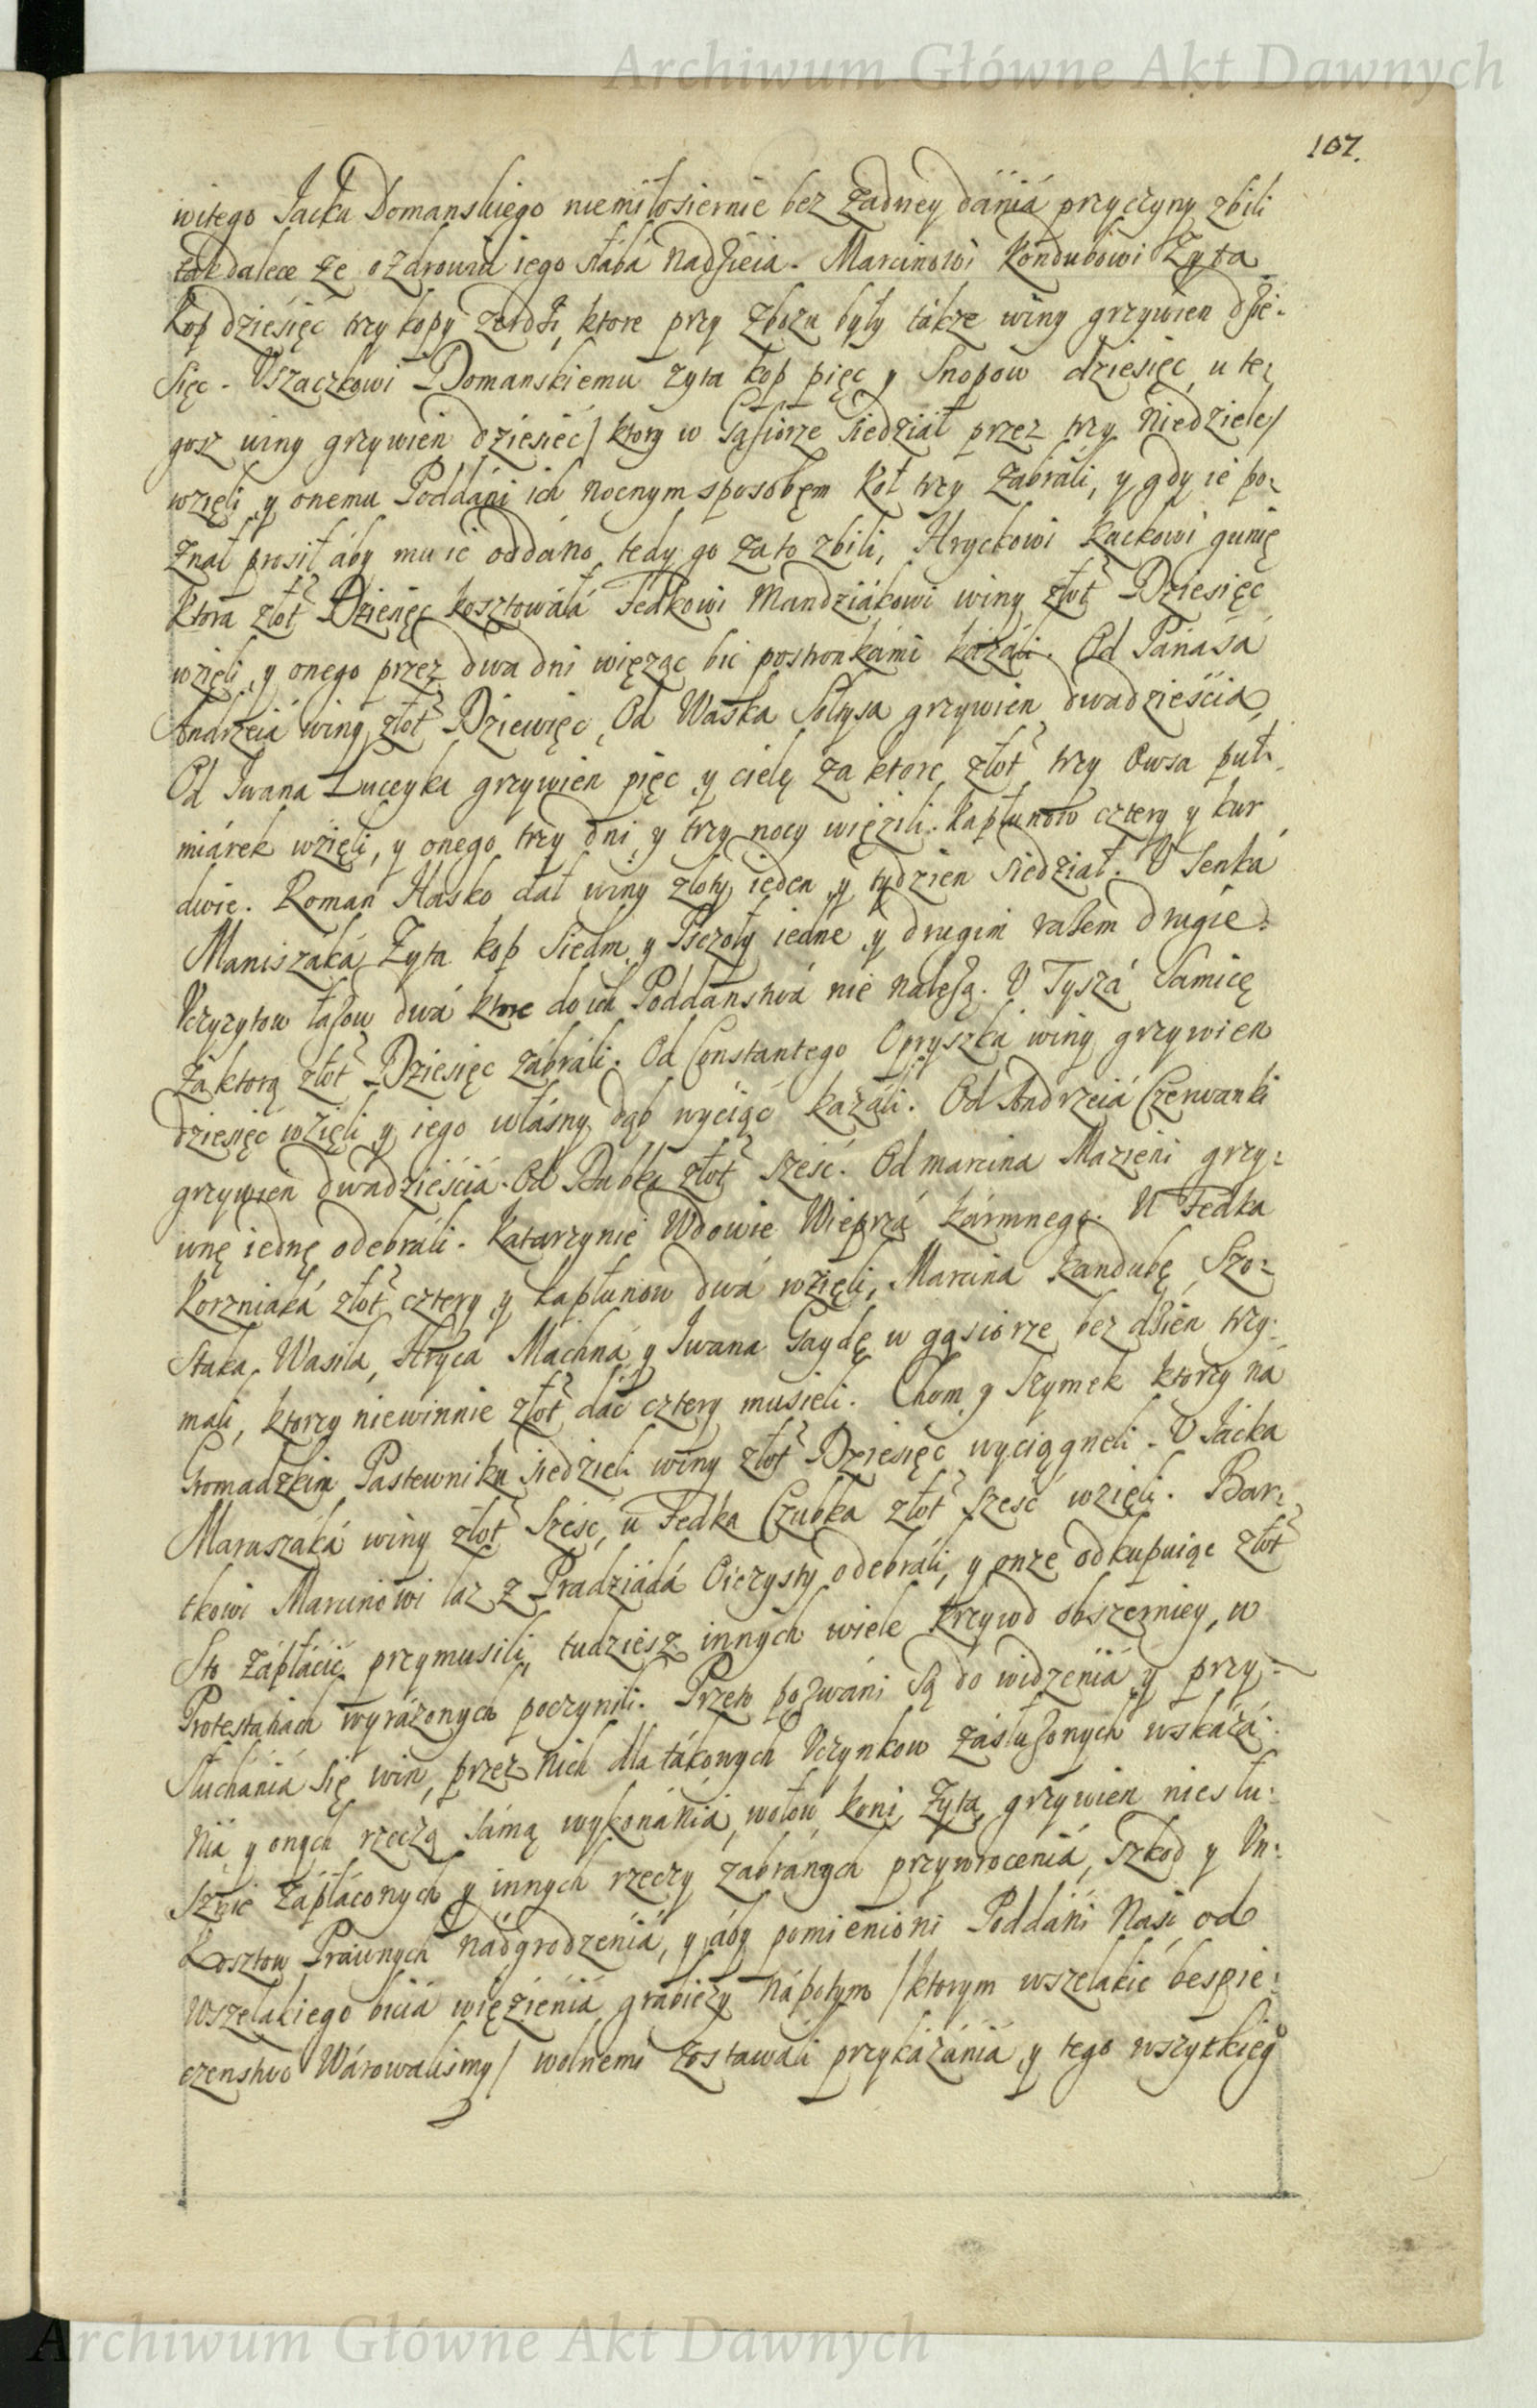 Archiwum Główne Akt Dawnych
107.
witego Jacka Domanskiego niemiłosiernie bez żadney dánia przyczyny zbili
tak dalece że o zdrowiu iego słába nadzieia. Marcinowi Kondubowi Zyta
kop dziesięć trzy kopy żerdzi, ktore przy zbożu były tákze winy grzywien dzie-
sięc. Uszaczkowi Domanskiemu zyta kop pięc y Snopow dziesięc, u te-
gosz winy grzywien dziesięć / ktory w Gąsiorze siedział przez trzy Niedziele /
wzięli y onemu Poddáni ich nocnym sposobęm Kot trzy zabráli, y gdy ie po-
znał prosił áby mu ie oddáno tedy go zato zbili, Hryckowi Kackowi gunię
ktora złot Dziesięc kosztowáłá Fedkowi Mandziákowi winy złot Dziesięc
wzięli, y onego przez dwa dni więząc bic postronkámi kázáli. Od Pánásá
Andrzeiá winy złot Dziewięc, Od Waska Sołtysa grzywien dwadzieścia,
Od Iwana Luceyka grzywien pięc y cielę za ktore złot trzy Owsa puł
miárek wzięli, y onego trzy dni y trzy nocy więzili. Kapłunow cztery y kur
dwie. Roman Hasko dał winy złoty ieden y tydzien siedział. U Senka
Maniszáká Zyta kop Siedm y Pszczoły iedne y drugim razem drugie.
Uczyzytow łasow dwá ktore do ich Poddánstwá nie nalezą. U Tyszá Samicę
zá ktorą złot Dziesięc zábráli. Od Constantego Opryszká winy grzywien
dziesięć wzięli y iego włásny dąb wyciąć kazáli. Od Andrzeiá Czerwanki
grzywien dwadzieściá. Od Babka złot sześć. Od marcina Mazieni grzy-
wnę iednę odebráli. Katarzynie Wdowie Wieprzá kármnego. U Fedka
Korzniáká złot cztery y kapłunow dwá wzięli, Marcina Kandubę Szo-
staka, Wasila, Hrycá Machná y Iwana Gaydę w gąsiorze bez dzien trzy-
mali, ktorzy niewinnie złot dác cztery musieli. Chom y Szymek ktorzy ná
Gromadzkim Pastewniku siedzieli winy złot Dziesięc wyciągneli. U Jácka
Maruszáká winy złot sześć, u Fedka Czubka złot sześć wzięli. Bar-
tkowi Marcinowi łaz z Pradziádá Oiczysty odebráli, y onze odkupuiąc złot
Sto zápłácić przymusili, tudziesz innych wiele krzywd obszerniey, w
Protestáciách wyráżonych poczynili. Przeto pozwáni są do widzeniá y przy-
słuchánia się win, przez nich dla tákowych Uczynkow zasłużonych wskázá-
niá y onych rzeczą sámą wykonánia, wołow, koni, zyta, grzywien niesłu-
sznie zápłáconych y innych rzeczy zabránych przywroceniá, szkod y Un-
kosztow Práwnych nádgrodzeniá, y áby pomienioni Poddáni Nási od
wszelákiego biciá więzieniá, grabieży nápotym / ktorym wszelákié bespie-
czenstwo Wárowalismy / wolnemi zostawáli przykázánia y tego wszytkieg
Archiwum Główne Akt Dawnych